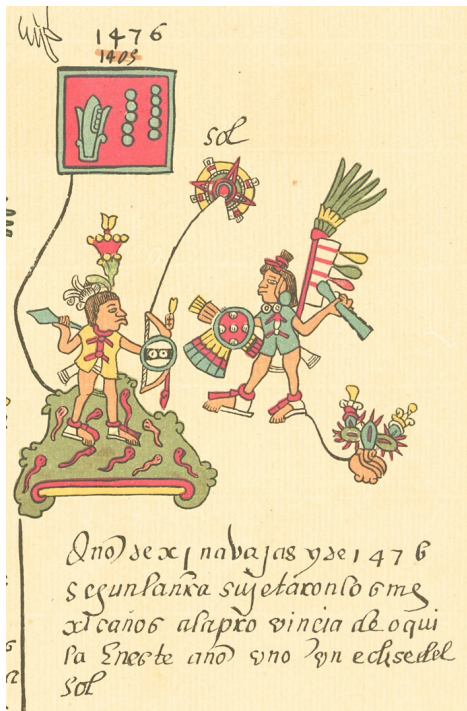 1476
1409
sol
Año de xj navajas y de 1476
segun la nr̃a sujetaron los me
xicanos a la pro vincia de o qui
la En este año vno vn eclise del
sol